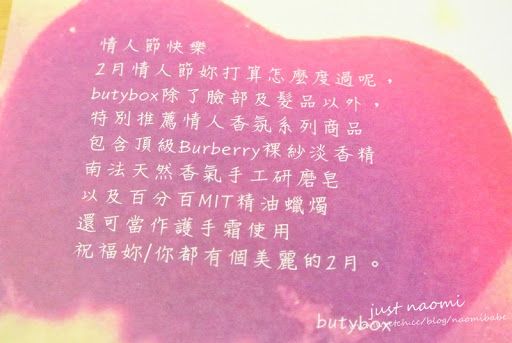 情人節快樂
2月情人節妳打算怎麼度過呢，
butybox除了臉部及髮品以外，
特別推薦情人香氛系列商品
包含頂級Burberry裸紗淡香精
南法天然香氣手工研磨皂
以及百分百MIT精油蠟燭
還可當作護手霜使用
祝福妳/你都有個美麗的2月。
just naomi
butybox